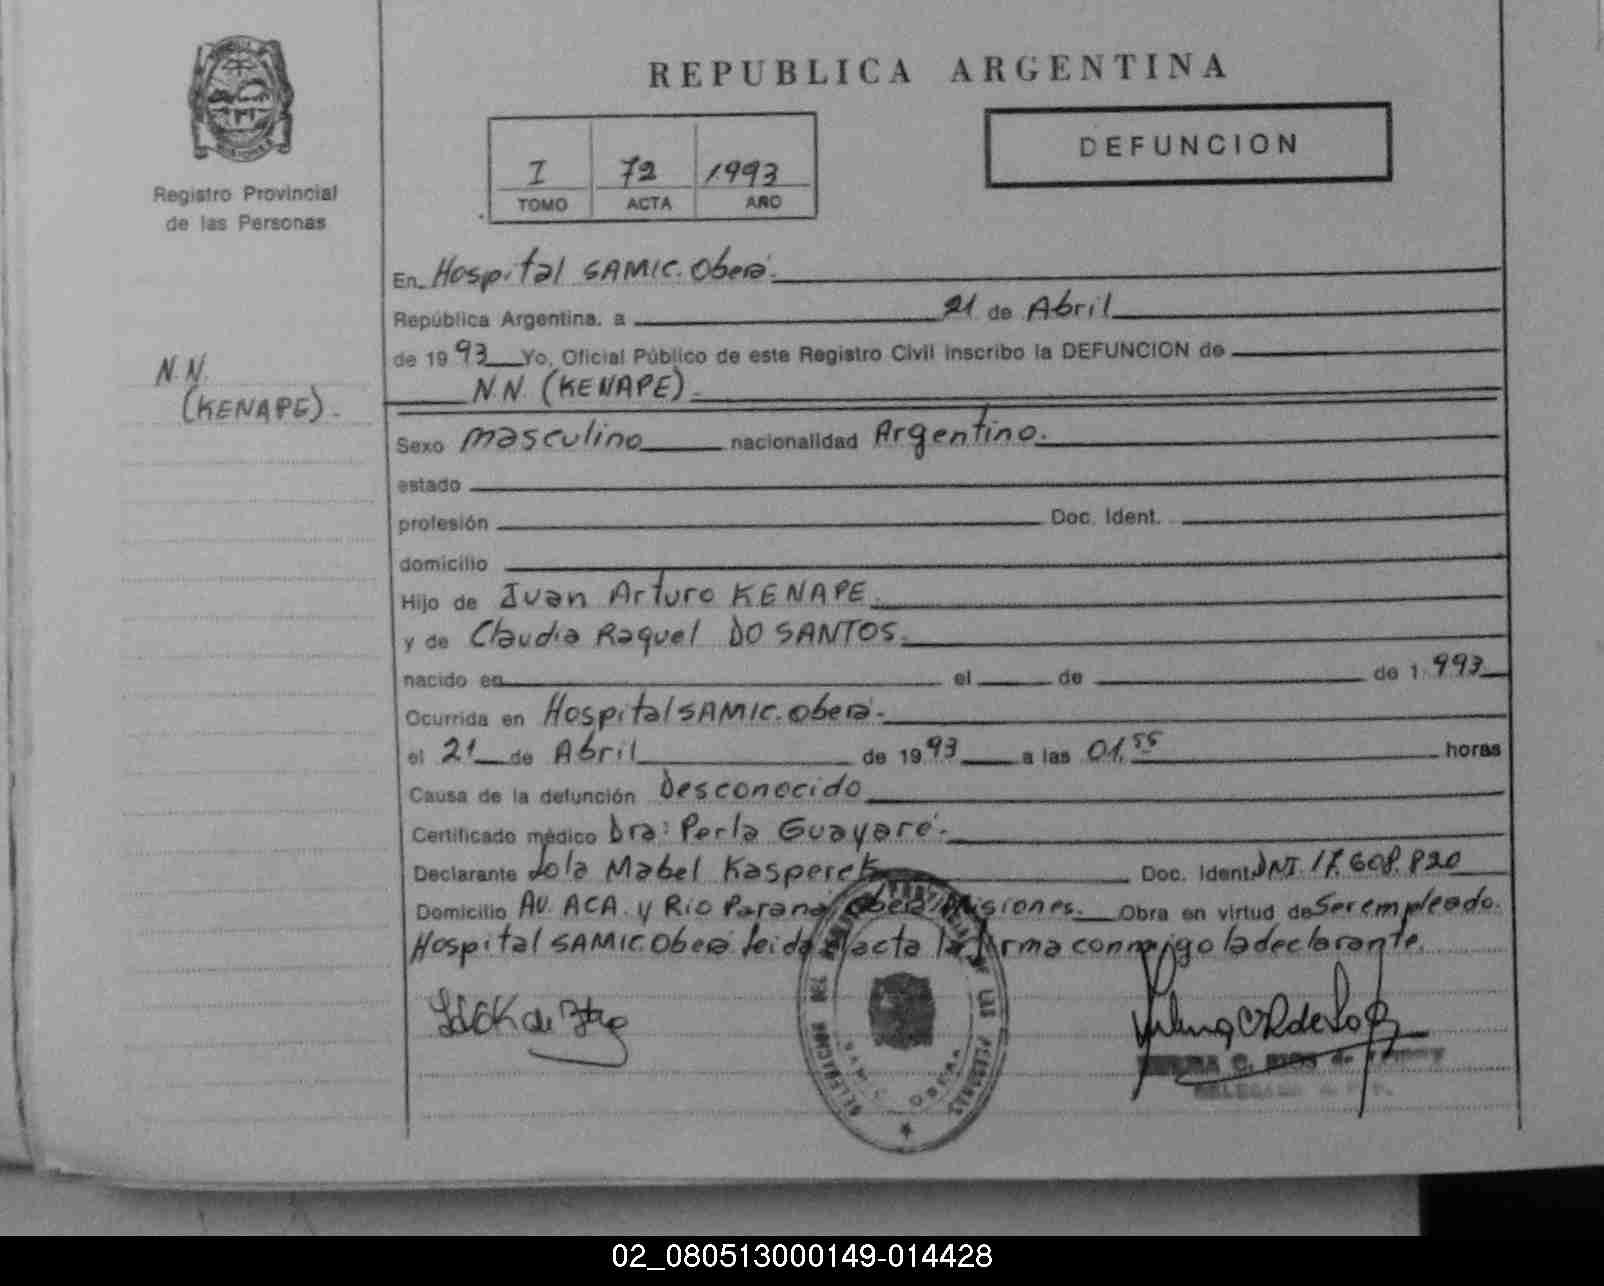 REPUBLICA ARGENTINA
DEFUNCION
I 72 1993
TOMO ACTA AÑO
Registro Provincial
de las Personas
N.N.
(KENAPE).
En Hospital SAMIC. Oberá.
República Argentina, a 21 de Abril
de 1993 Yo, Oficial Público de este Registro Civil inscribo la DEFUNCION de
N.N. (KENAPE).
Sexo masculino nacionalidad Argentino.
estado
profesión Doc. Ident.
domicilio
Hijo de Juan Arturo KENAPE.
y de Claudia Raquel DO SANTOS.
nacido en el de de 1.993
Ocurrida en Hospital SAMIC. Oberá.
el 21 de Abril de 1993 a las 01,55 horas
Causa de la defunción Desconocido
Certificado médico Dra: Perla Guayaré.
Declarante Lola Mabel Kasperek Doc. Ident. DNI. 17.608.820
Domicilio AV. ACA. y Rio Parana Oberá Misiones. Obra en virtud de Ser empleado.
Hospital SAMIC. Oberá. leida el acta la firma conmigo la declarante.
DE LAS PERSONAS
OBERA
02_080513000149-014428